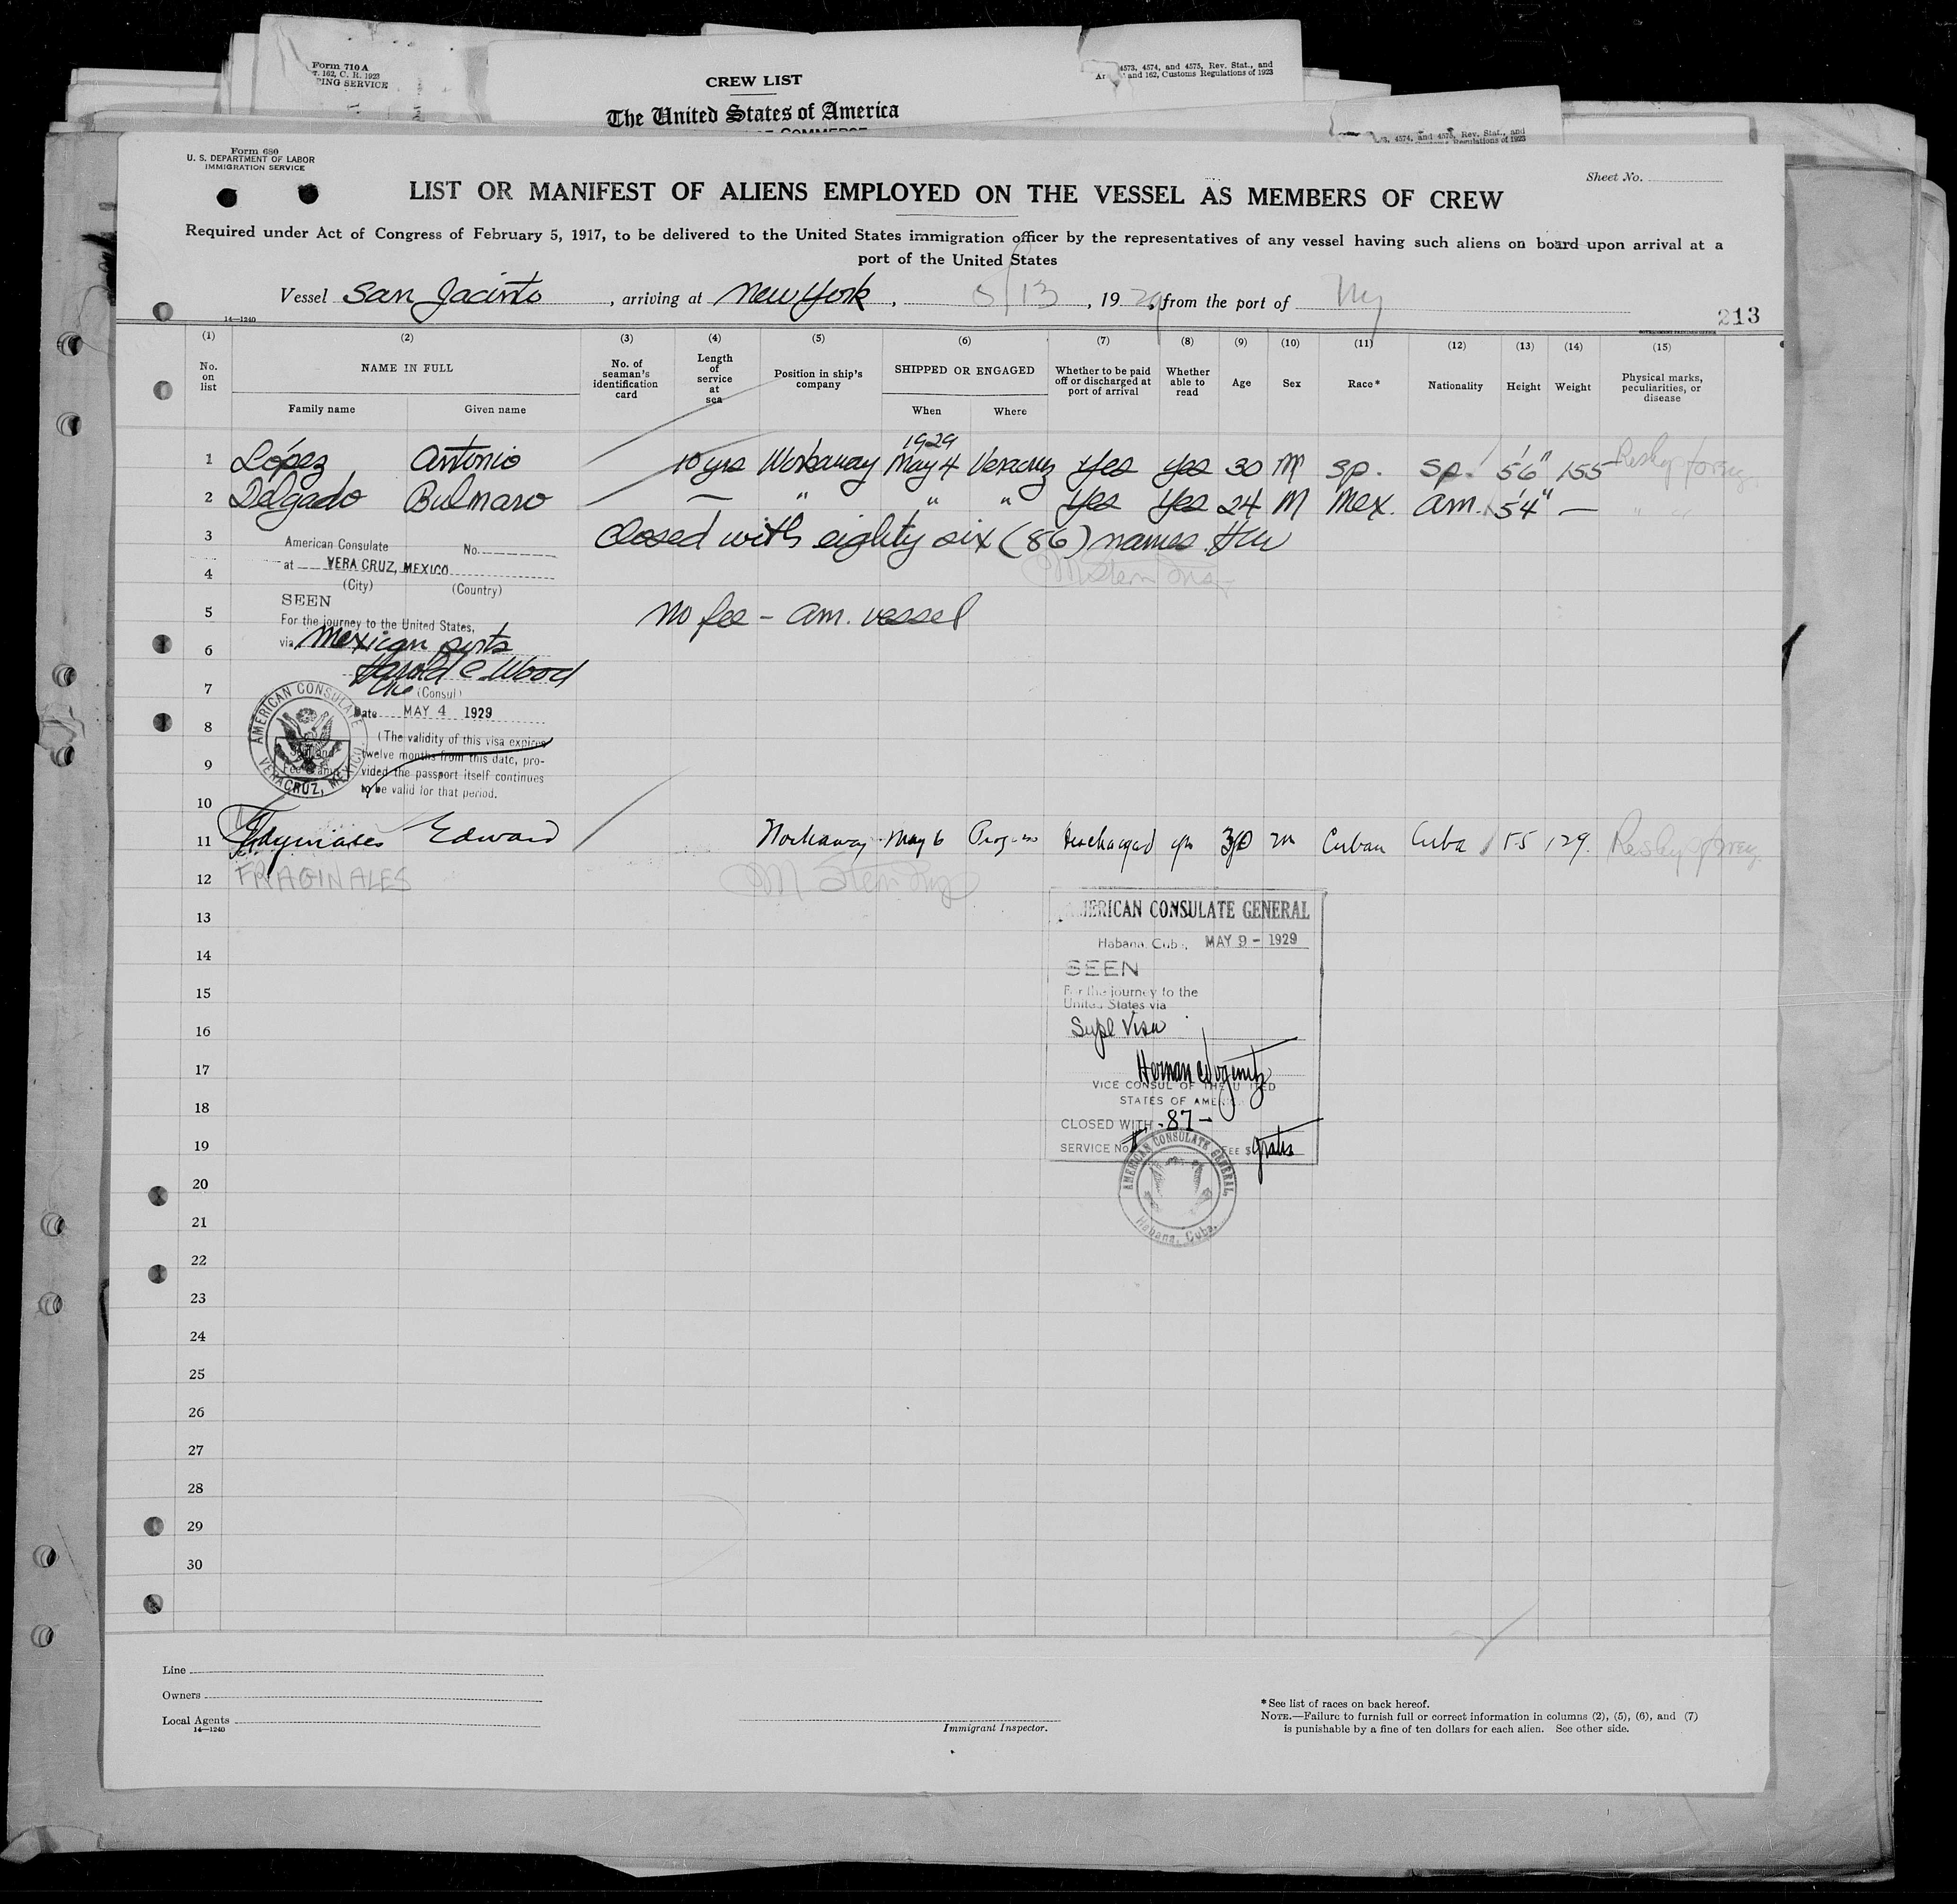 Form 710 A
162, C. R. 1923
PING SERVICE
CREW LIST
The United States of America
4573, 4574, and 4575, Rev. Stat., and
and 162, Customs Regulations of 1923
4574, and 4575, Rev. Stat., and
Regulations of 1923
Form 680
U. S. DEPARTMENT OF LABOR
IMMIGRATION SERVICE
Sheet No.
LIST OR MANIFEST OF ALIENS EMPLOYED ON THE VESSEL AS MEMBERS OF CREW
Required under Act of Congress of February 5, 1917, to be delivered to the United States immigration officer by the representatives of any vessel having such aliens on board upon arrival at a
port of the United States
Vessel San Jacinto, arriving at New York, 5/13, 1929, from the port of
14—1240
213
(1) (2) (3) (4) (5) (6) (7) (8) (9) (10) (11) (12) (13) (14) (15)
No. on list NAME IN FULL No. of seaman's identification card Length of service at sea Position in ship's company SHIPPED OR ENGAGED Whether to be paid off or discharged at port of arrival Whether able to read Age Sex Race* Nationality Height Weight Physical marks, peculiarities, or disease
Family name Given name When Where
1929
1 López Antonio 10 yrs Workaway May 4 Veracruz Yes yes 30 M Sp. Sp. 5'6" 155
2 Delgado Bulmaro — " " " Yes Yes 24 M Mex. Am. 5'4" —
3 Closed with eighty six (86) names HCW
American Consulate No.
at VERA CRUZ, MEXICO
4
(City) (Country)
SEEN
5 No fee - Am. vessel
For the journey to the United States,
via Mexican ports
6
Harold C Wood
7 (Consul)
Date MAY 4 1929
8
(The validity of this visa expires
twelve months from this date, pro-
9 vided the passport itself continues
to be valid for that period.
AMERICAN CONSULATE
VERACRUZ, MEXICO
10
11 Edward Workaway May 6 Progreso Discharged yes 30 m Cuban Cuba 5-5 129.
12 FRAGINALES
AMERICAN CONSULATE GENERAL
13
Habana, Cuba, MAY 9 - 1929
14
SEEN
15
For the journey to the
United States via
16 Supl Visa
17
VICE CONSUL OF THE UNITED
STATES OF AMERICA
18
CLOSED WITH - 87 -
19 SERVICE No. FEE $ gratis
AMERICAN CONSULATE GENERAL,
Habana, Cuba.
20
21
22
23
24
25
26
27
28
29
30
Line
Owners
Local Agents
14—1240
Immigrant Inspector.
*See list of races on back hereof.
NOTE.—Failure to furnish full or correct information in columns (2), (5), (6), and (7)
is punishable by a fine of ten dollars for each alien. See other side.